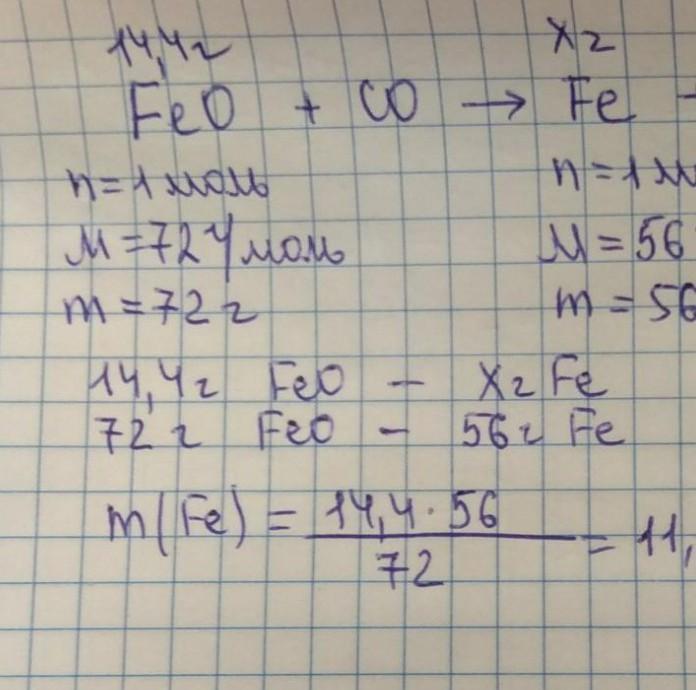 14,4г X г
FeO + CO → Fe -
n = 1 моль n = 1 м
M = 72 г/моль M = 56
m = 72 г m = 56
14,4г FeO - X г Fe
72 г FeO - 56 г Fe
m(Fe) = 14,4 · 56 / 72 = 11,